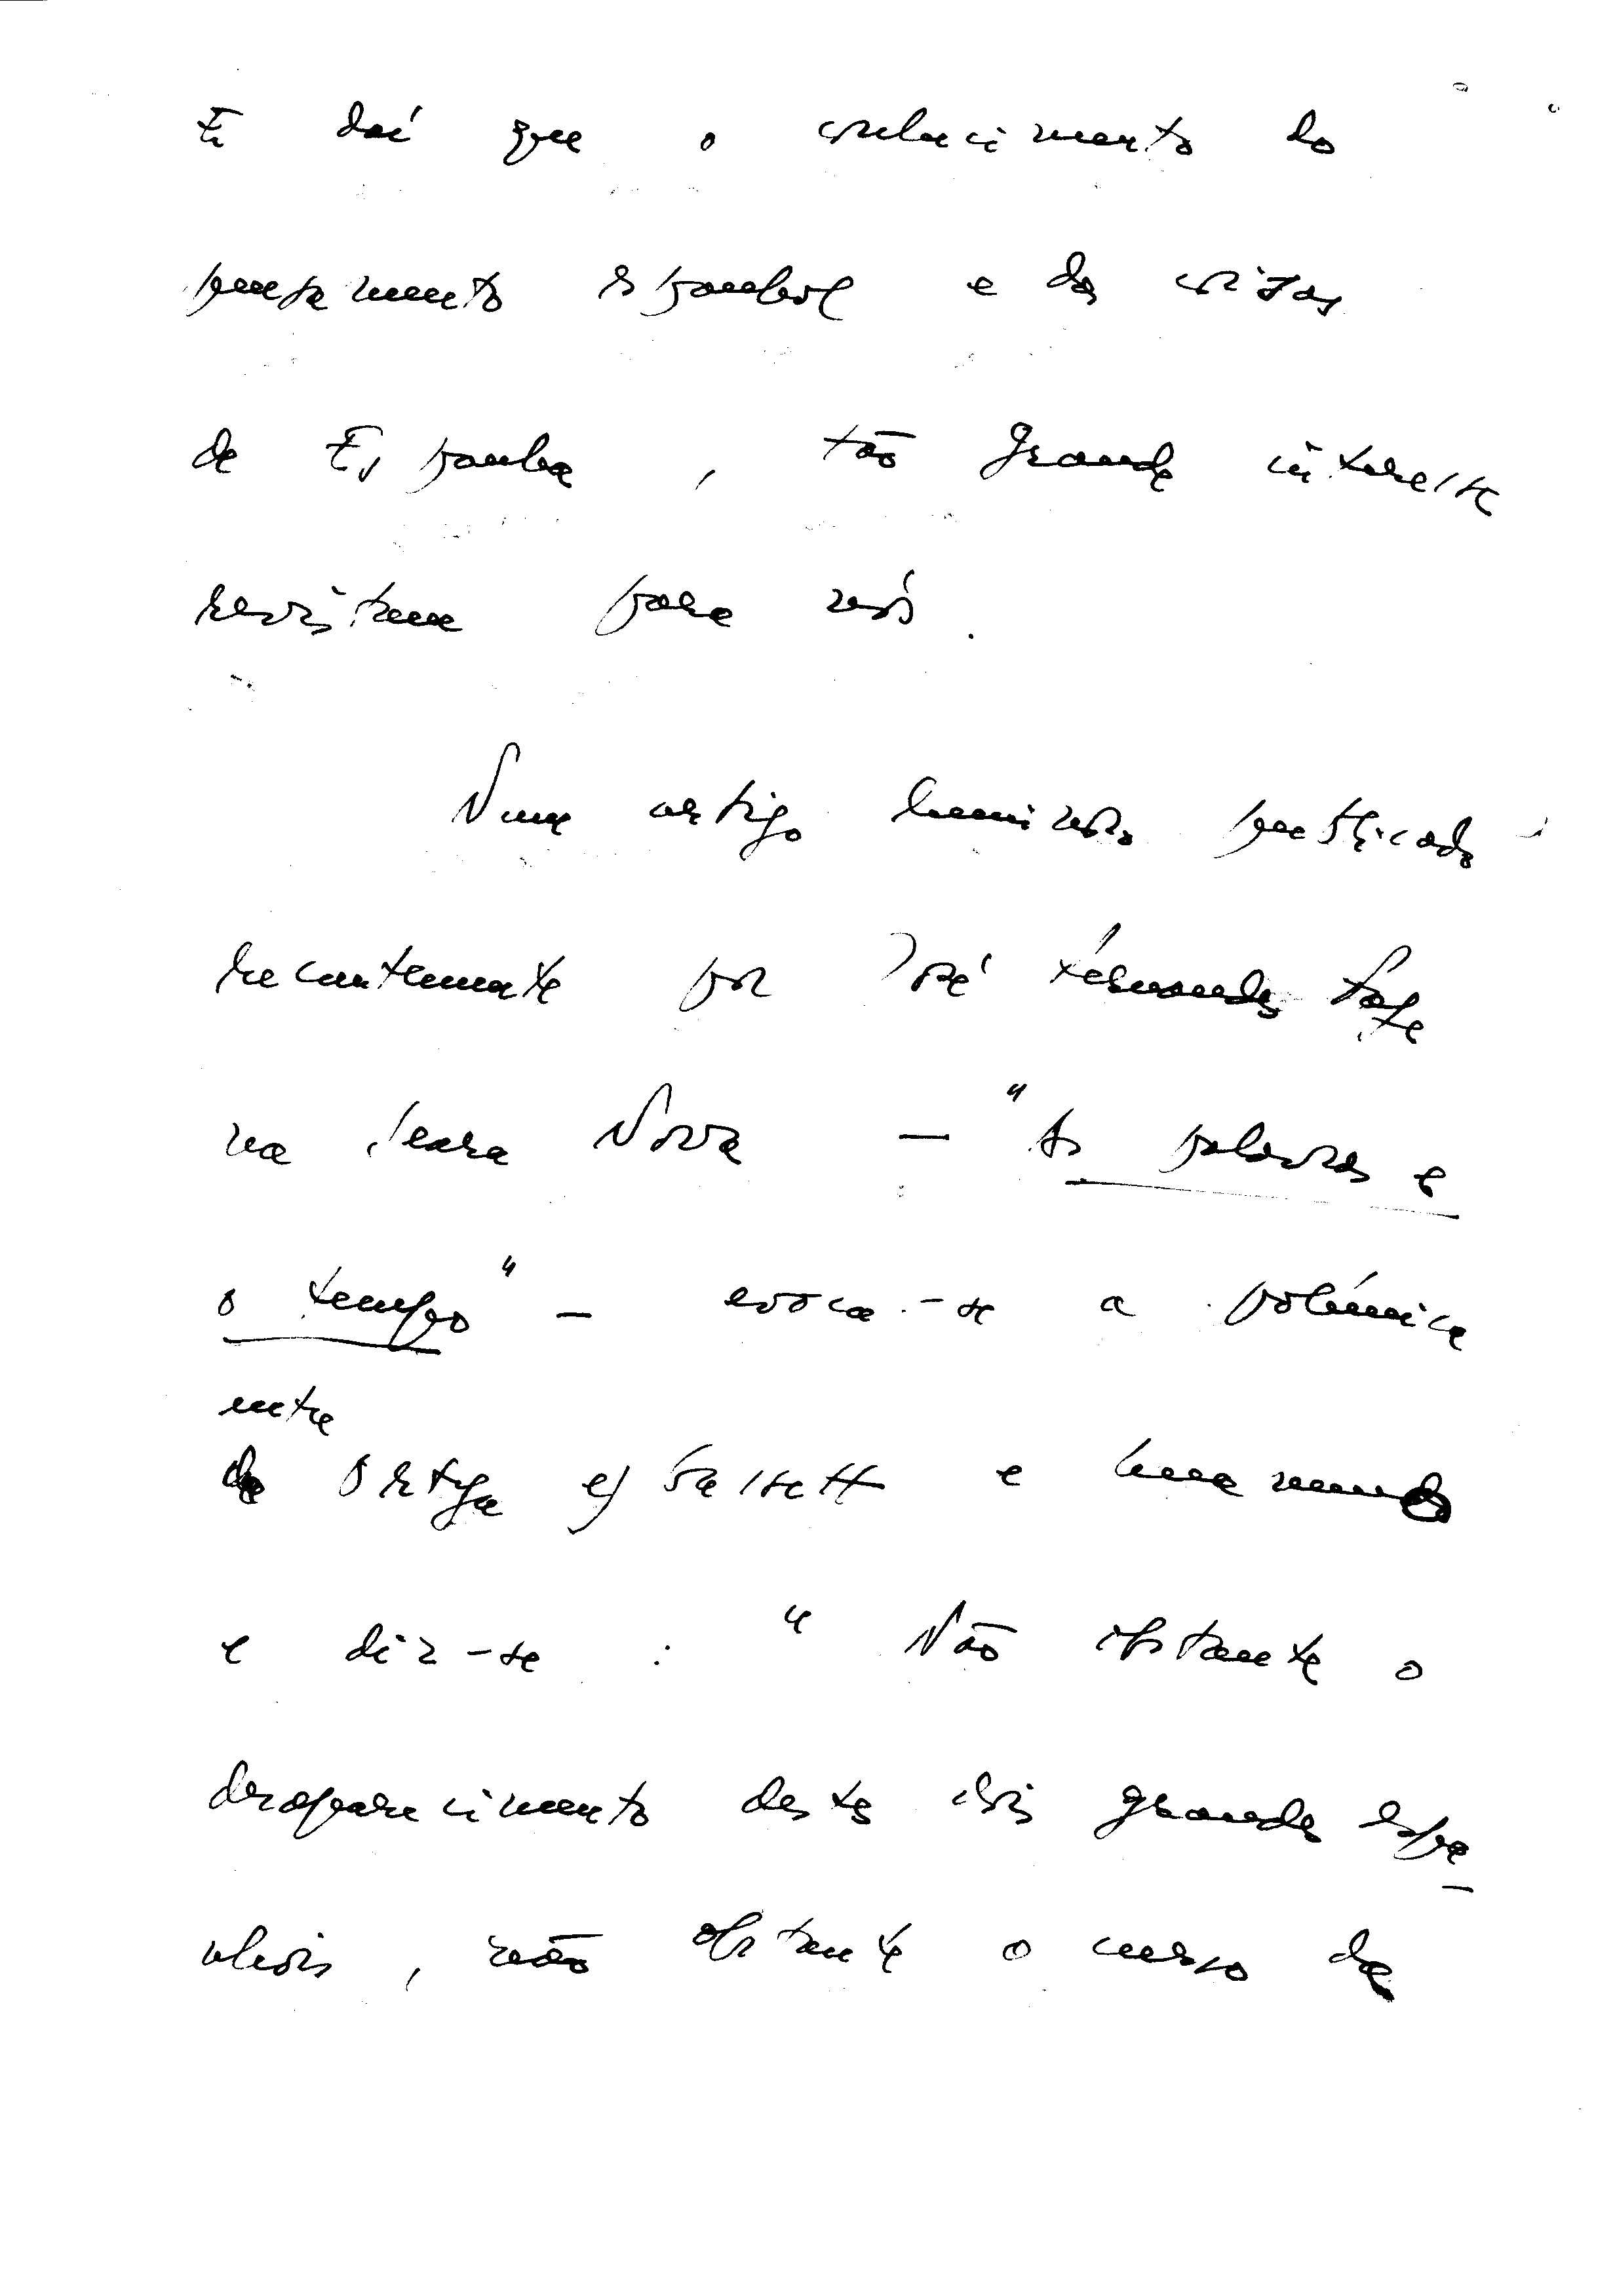 E daí que o conhecimento do
pensamento espanhol e das coisas
de Espanha, tão grande interesse
revistam para nós.
Num artigo luminoso publicado
recentemente por José Fernandes Fafe
na Seara Nova — "As palavras e
o tempo" — evoca-se a polémica
entre
de Ortega y Gasset e Unamuno
e diz-se: "Não obstante o
desaparecimento destes dois grandes espa-
nhóis, não obstante o curso da